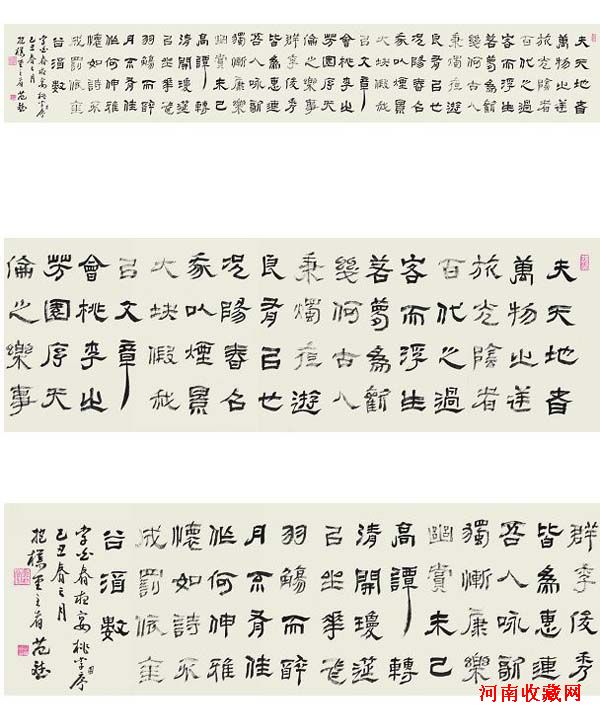 夫天地者
萬物之逆
旅光陰者
百代之過
客而浮生
若夢為歡
幾何古人
秉燭夜遊
良有以也
況陽春召
我以煙景
大塊假我
以文章
會桃李之
芳園序天
倫之樂事
群季俊秀
皆為惠連
吾人咏歌
獨慚康樂
幽賞未已
高譚轉
清開瓊筵
以坐華飛
羽觴而醉
月不有佳
作何伸雅
懷如詩不
成罰依金
谷酒數
李白春夜宴桃李序
己丑春之月
夫天地者
萬物之逆
旅光陰者
百代之過
客而浮生
若夢為歡
幾何古人
秉燭夜遊
良有以也
況陽春召
我以煙景
大塊假我
以文章
會桃李之
芳園序天
倫之樂事
群季俊秀
皆為惠連
吾人咏歌
獨慚康樂
幽賞未已
高譚轉
清開瓊筵
以坐華飛
羽觴而醉
月不有佳
作何伸雅
懷如詩不
成罰依金
谷酒數
李白春夜宴桃李序
己丑春之月
河南收藏网